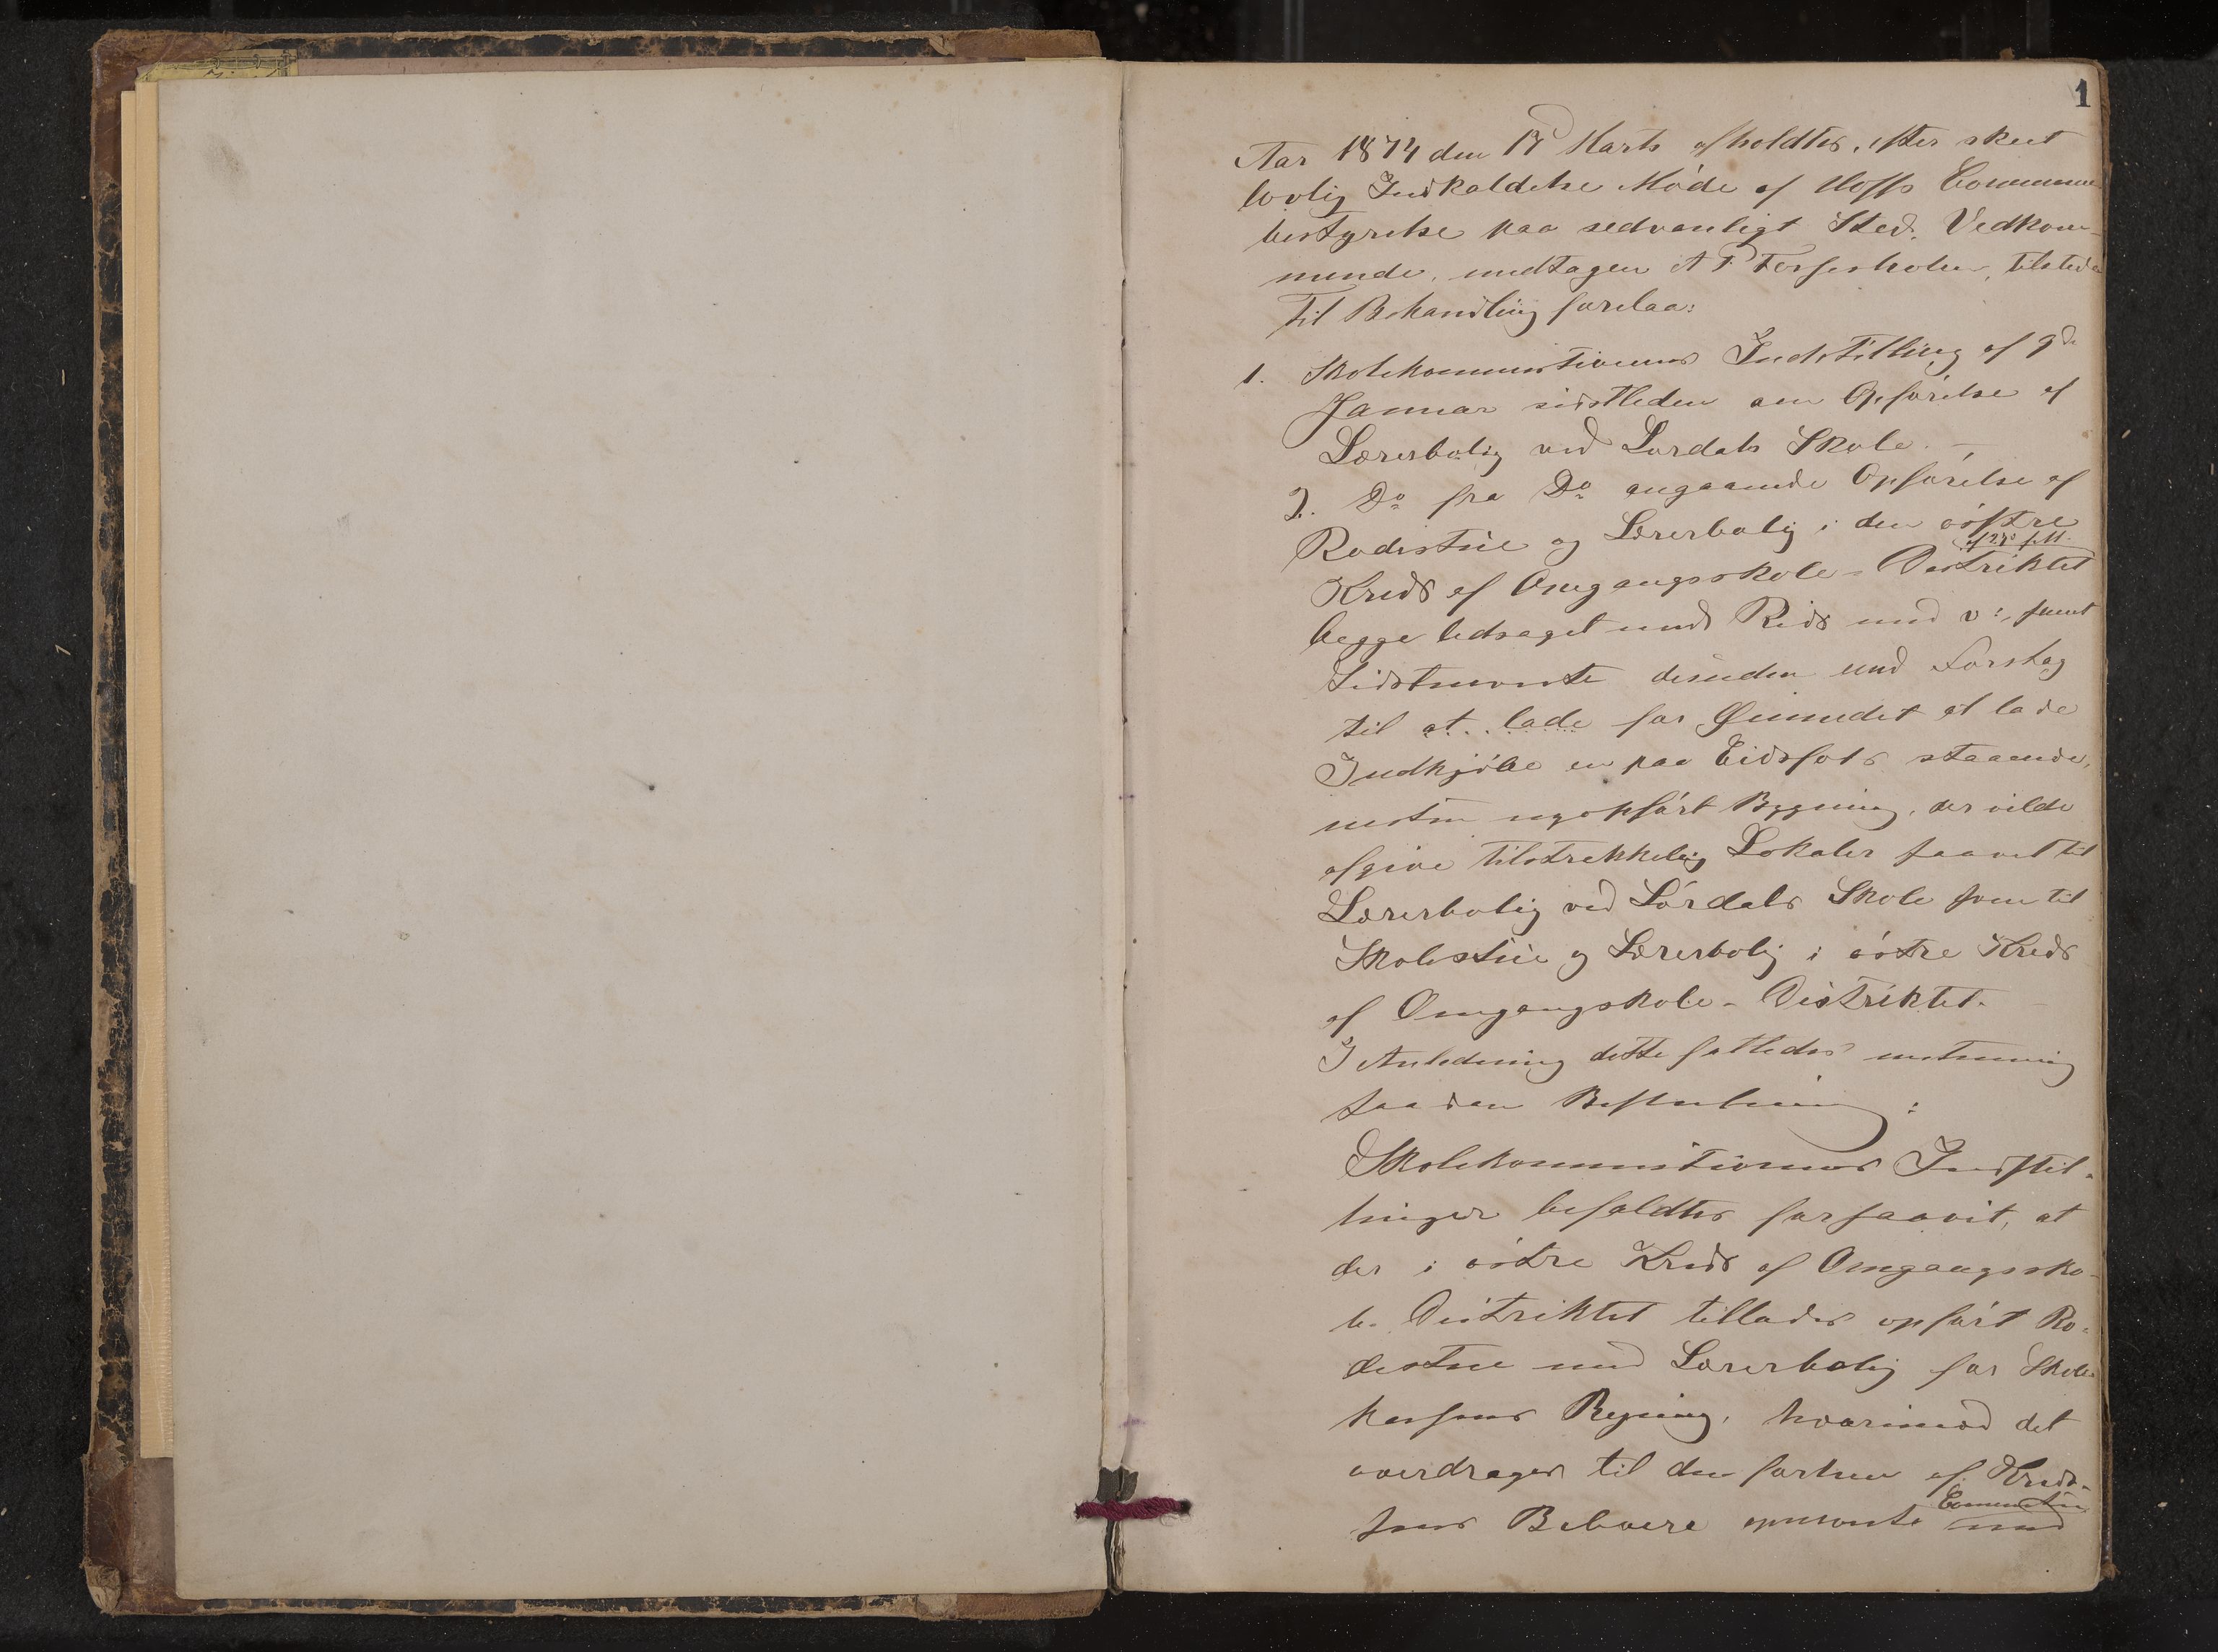 1
Aar 1874 den 17 Marts afholdtes, efter skeet
lovlig Indkaldelse Møde af Hoffs Commune
bestyrelse paa sedvanligt Sted. Vedkom-
mende, undtagen A T tilstede
Til Behandling forelaa:
1. Skolekommissionens Indstilling af 9de
Januar sidstleden om Opførelse af
Lærerbolig ved Lørdals Skole. —
2. Do fra Do angaaende Opførelse af
Rodestue og Lærerbolig i den østre
Kreds af Omgangsskole-Distriktet
af 27de f.M.
begge ledsaget med Rids med v:, samt
Sidstnævnte desuden med Forslag
til at lade for Øiemedet at lade
Indkjøbe en paa Eidsfos staaende,
nesten nyopført Bygning, der vilde
afgive tilstrekkelig Lokaler saavel til
Lærerbolig ved Lørdals Skole som til
Skolestue og Lærerbolig i østre Kreds
af Omgangskole-Distriktet.
I Anledning dette fattedes enstemmig
saadan Beslutning:
Skolekommissionens Indstil-
linger befaldtes forsaavit, at
der i østre Kreds af Omgangssko-
le-Distriktet tillades opført Ro-
destue med Lærerbolig for Skole
kassens Regning, hvorimod det
overdrages til den forhen af Kred-
sens Beboere opnævnte Committee
med